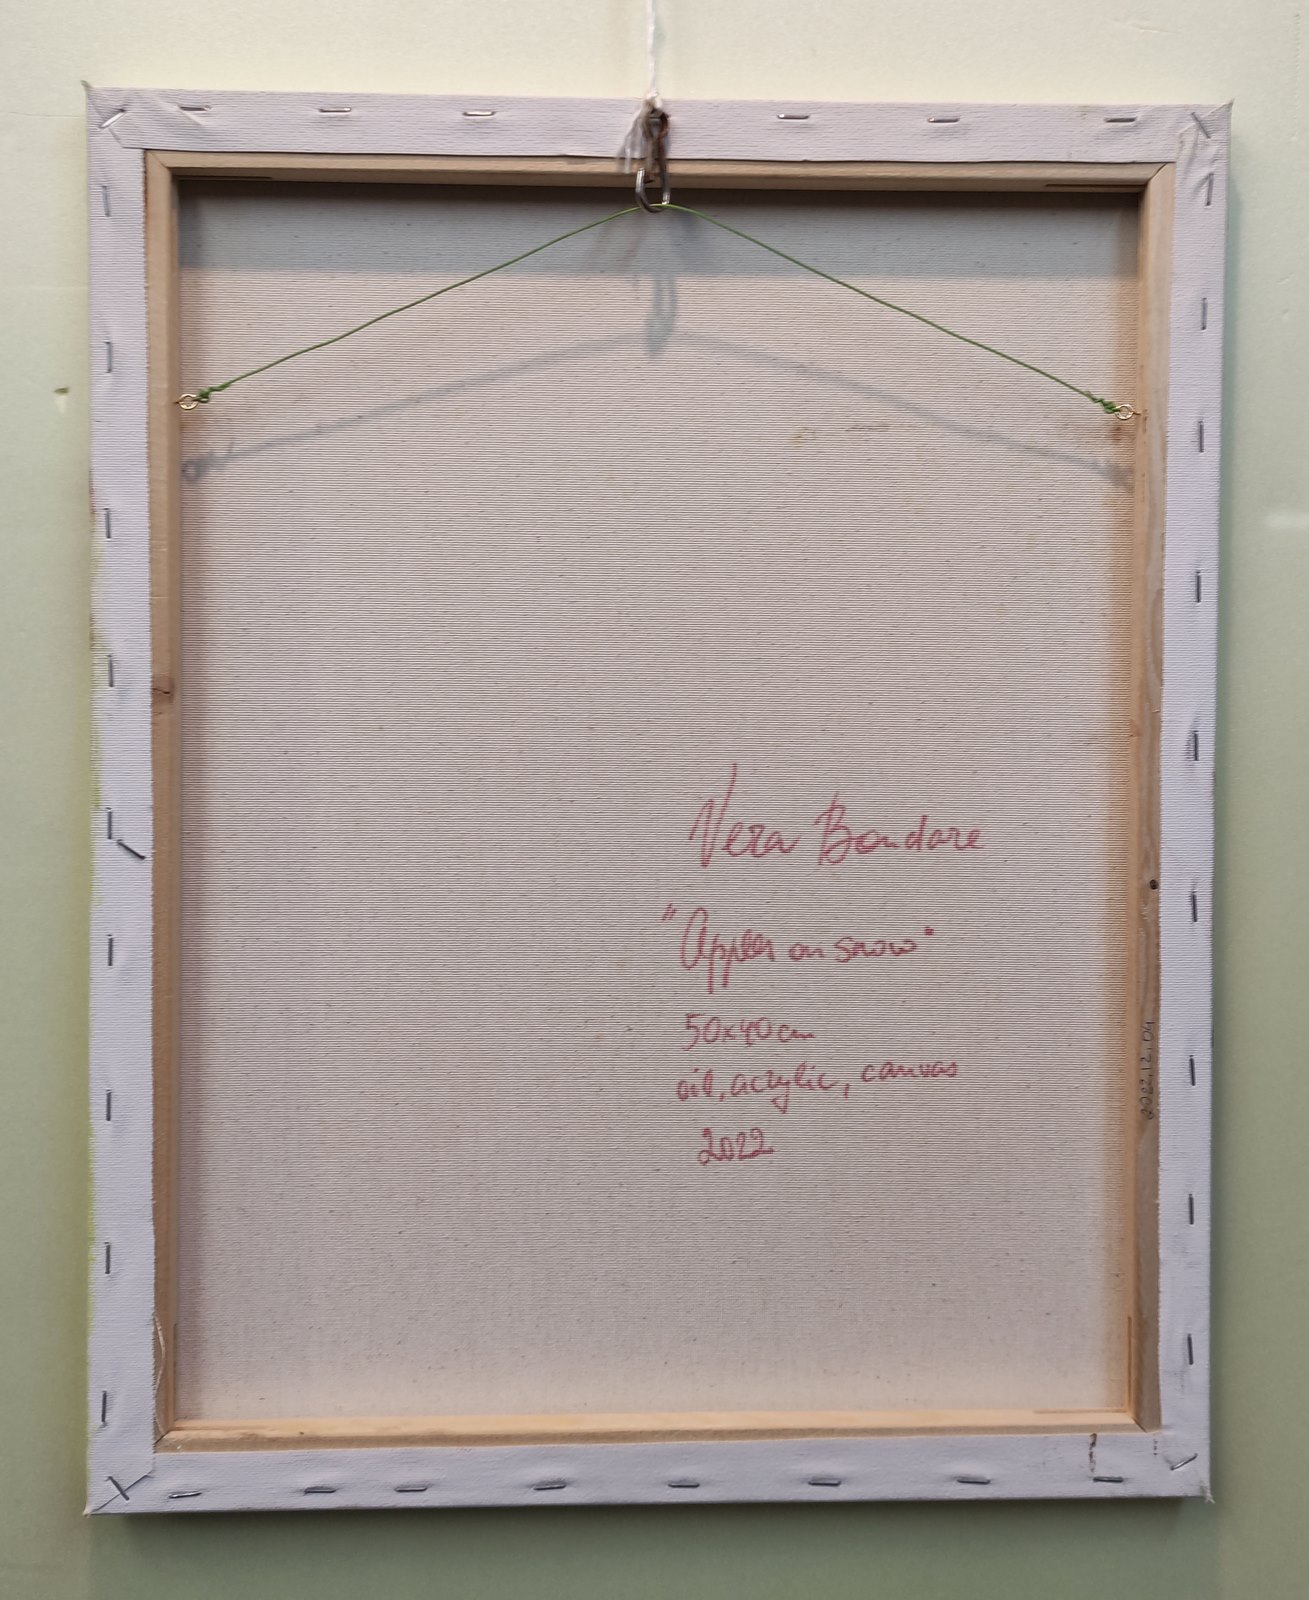 Vera Bondare
"Apples on snow"
50x40cm
oil, acrylic, canvas
2022
2022.12.04